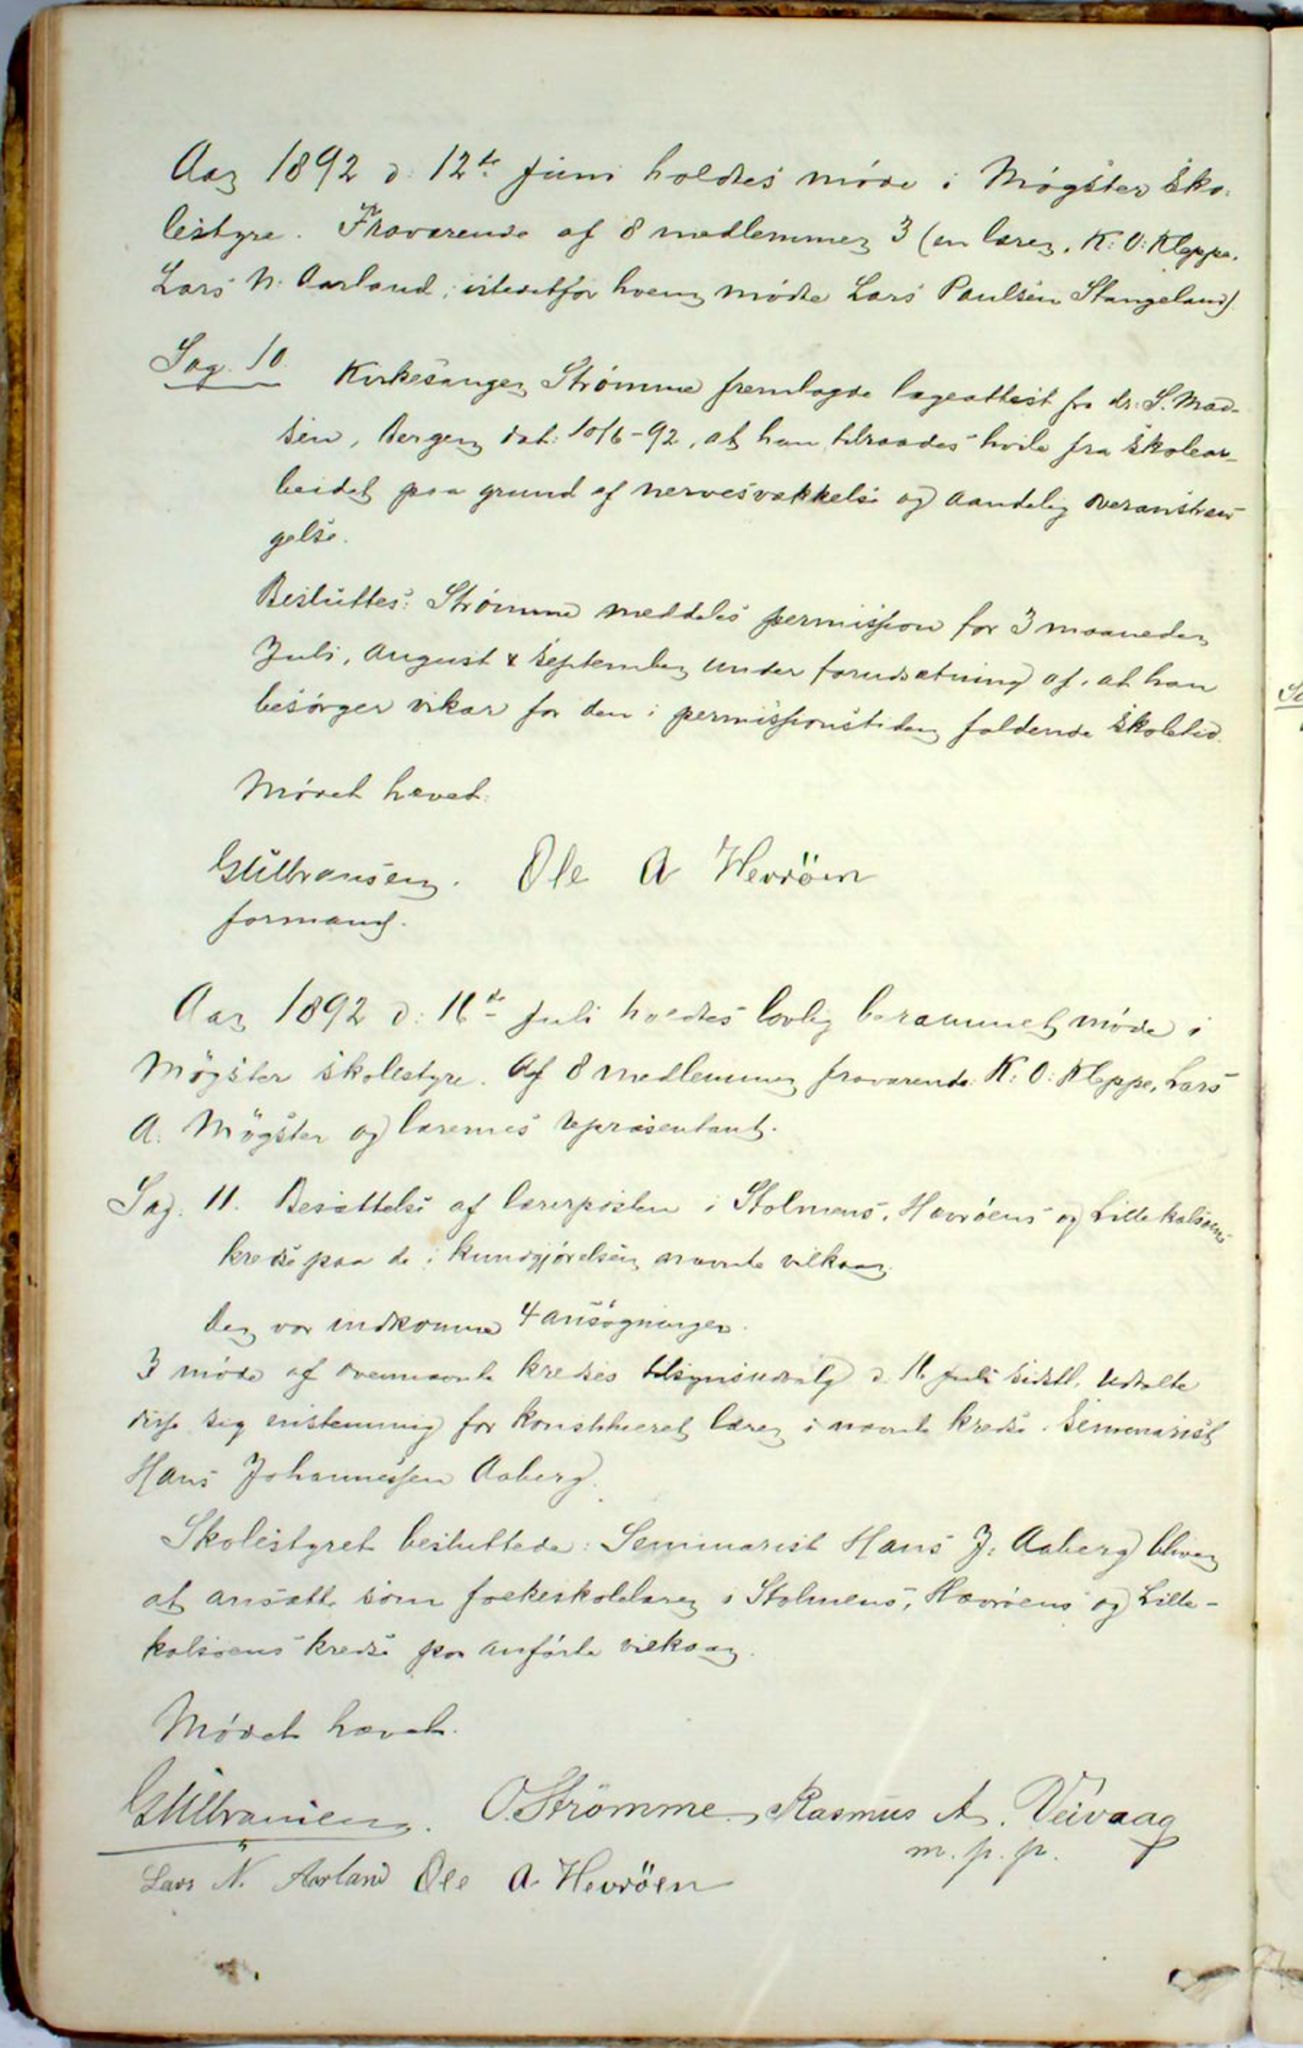 Aar 1892 d: 12te juni holdtes møde i Møgster sko-
lestyre. Fraværende af 8 medlemmer 3 (en lærer, K: O: Kleppe,
Lars N. Aarland; istedetfor hvem mødte Lars Paulsen Stangeland)
Sag. 10. Kirkesanger Strømme fremlagde lægeattest fra dr. S. Mad-
sen, Bergen, dat: 10/6-92, at han tilraades hvile fra skolear-
beidet paa grund af nervesvækkelse og aandelig overanstren-
gelse.
Besluttes: Strømme meddeles permission for 3 maaneder,
Juli, August & September under forudsætning af, at han
besørger vikar for den i permissionstiden faldende skoletid.
Mødet hævet.
Gulbransen. Ole A Hevröen
formand.
Aar 1892 d: 16de juli holdtes lovlig berammet møde i
Møgster skolestyre. Af 8 medlemmer fraværende: K: O: Kleppe, Lars
A. Møgster og lærernes repræsentant.
Sag. 11. Besættelse af lærerposten i Stolmens, Hævrøens og Lille kalsøens
kredse paa de i kundgjørelsen nævnte vilkaar.
Der var indkomne 4 ansøgninger.
I møde af ovennævnte kredses tilsynsudvalg d. 16 juli sidstl. udtalte
disse sig enstemmig for konstitueret lærer i nævnte kredse, Seminarist
Hans Johannessen Aaberg.
Skolestyret besluttede: Seminarist Hans J: Aaberg bliver
at ansætte som folkeskolelærer i Stolmens, Hævrøens og Lille-
kalsøens kredse paa anførte vilkaar.
Mødet hævet.
Gulbransen. O. Strömme Rasmus A. Veivaag
m. p. p.
Lars N. Aarland Ole A. Hevröen